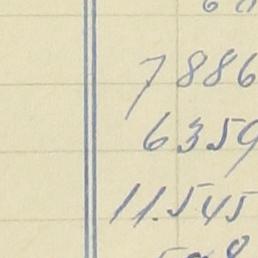 7886
6359
11.545